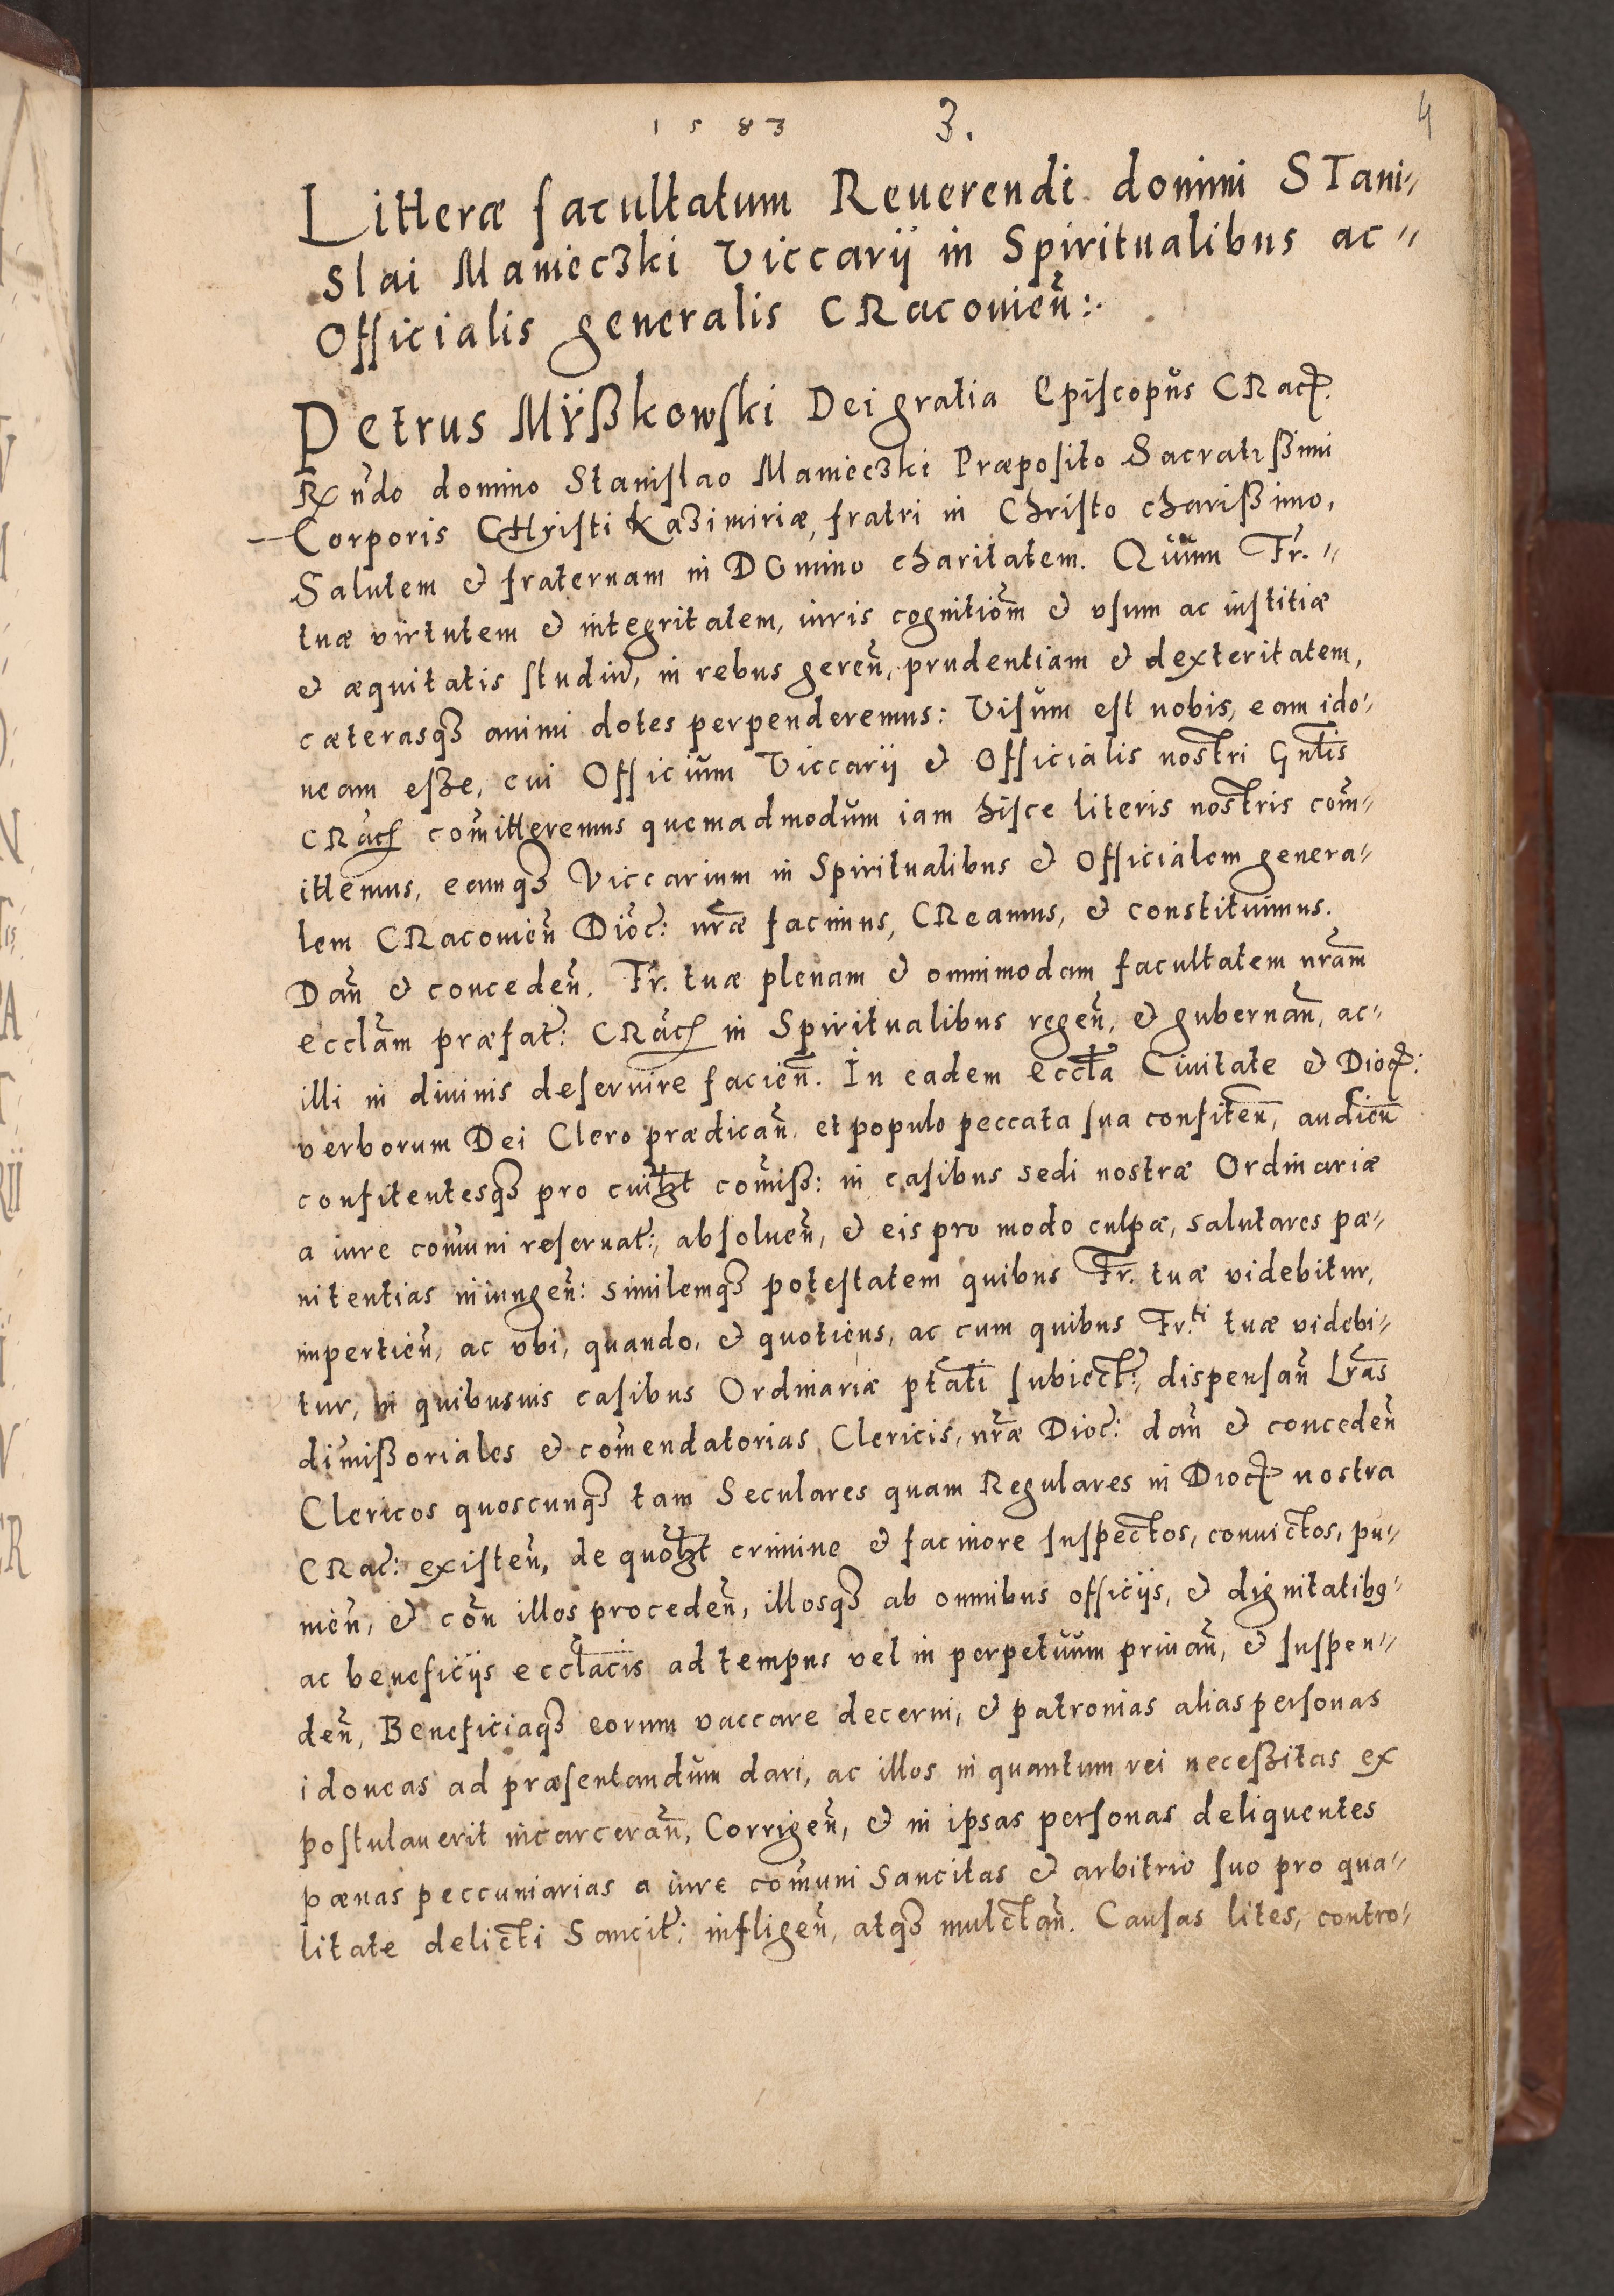 1583 3. 4
Litteræ facultatum Reuerendi domini STani〃
slai Manieczki Viccarij in Spiritualibus ac〃
Officialis generalis CRacouien̄:.
Petrus Mÿßkowski Dei gratia Episcopus CRac̄.
Rn̄do domino Stanislao Manieczki Præposito Sacratißimi
Corporis CHristi Kazimiriæ, fratri in Christo charißimo,
Salutem & fraternam in DOmino charitatem. Quum Fr.〃
tuæ virtutem & integritatem, iuris cognitiōm & vsum ac iustitiæ
& æquitatis studiū, in rebus geren̄, prudentiam & dexteritatem,
cæterasqꝫ animi dotes perpenderemus: Visum est nobis, eam ido〃
neam eſze, cui Officium Viccarij & Officialis nostri Gn̄lis
CRac̄ com̄itteremus quemadmodum iam hisce literis nostris com̄〃
ittemus, eamqꝫ Viccarium in Spiritualibus & Officialem genera〃
lem CRacouien̄ Dioc̄: nr̄æ facimus, CReamus, & constituimus.
Dan̄ & conceden̄. Fr. tuæ plenam & omnimodam facultatem nr̄am
eccl̄am præfat̄: CRac̄ in Spiritualibus regen̄, & gubernan̄, ac〃
illi in diuinis deseruire facien̄. In eadem Eccl̄a Ciuitate & Dioc̄:
verborum Dei Clero prædican̄. et populo peccata sua confiten̄, audien̄
confitentesqꝫ pro cuiꝉꝫt com̄iß: in casibus sedi nostræ Ordinariæ
a iure com̄uni reseruat̄:, absoluen̄, & eis pro modo culpæ, salutares pæ〃
nitentias iniungen̄: similemqꝫ potestatem quibus Fr. tuæ videbitur,
impertien̄, ac vbi, quando, & quotiens, ac cum quibus Fr.ti tuæ videbi〃
tur, in quibusuis casibus Ordinariæ ptāti subiect̄:, dispensan̄ Lr̄as
dimißoriales & com̄endatorias Clericis, nr̄æ Dioc̄: dan̄ & conceden̄
Clericos quoscunqꝫ tam Seculares quam Regulares in Dioc̄ nostra
CRac̄: existen̄, de quoꝉꝫt crimine & facinore suspectos, conuictos, pu〃
nien̄, & con̄ illos proceden̄, illosqꝫ ab omnibus officijs, & dignitatibꝯ〃
ac beneficijs eccl̄acis ad tempus vel in perpetuum priuan̄, & suspen〃
den̄, Beneficiaqꝫ eorum vaccare decerni, & patronias alias personas
idoneas ad præsentandum dari, ac illos in quantum rei neceſzitas ex
postulauerit incarceran̄, Corrigen̄, & in ipsas personas deliquentes
pænas peccuniarias a iure com̄uni Sancitas & arbitrio suo pro qua〃
litate delicti Sancit̄: infligen̄, atqꝫ mulctan̄. Causas lites, contro〃